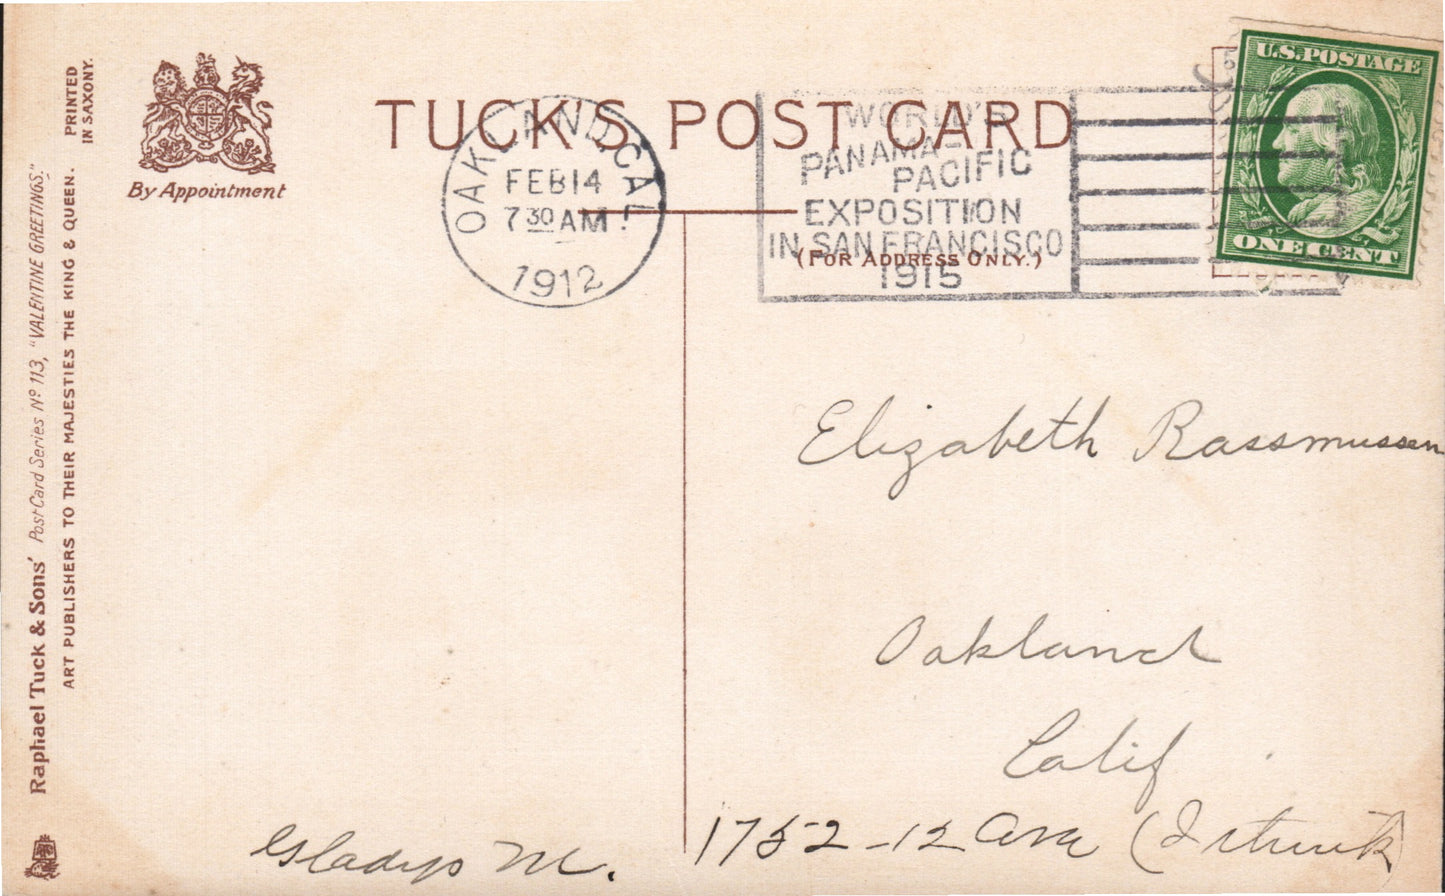 PRINTED
IN SAXONY.
By Appointment
Raphael Tuck & Sons' Post Card Series Nº 113, "VALENTINE GREETINGS."
ART PUBLISHERS TO THEIR MAJESTIES THE KING & QUEEN.
TUCK'S POST CARD
(FOR ADDRESS ONLY.)
OAKLAND, CAL.
FEB 14
7 30 AM
1912
WORLD'S
PANAMA-
PACIFIC
EXPOSITION
IN SAN FRANCISCO
1915
U.S. POSTAGE
ONE CENT
Elizabeth Rassmussen
Oakland
Calif
1752-12 Ave (I think)
Gladys M.